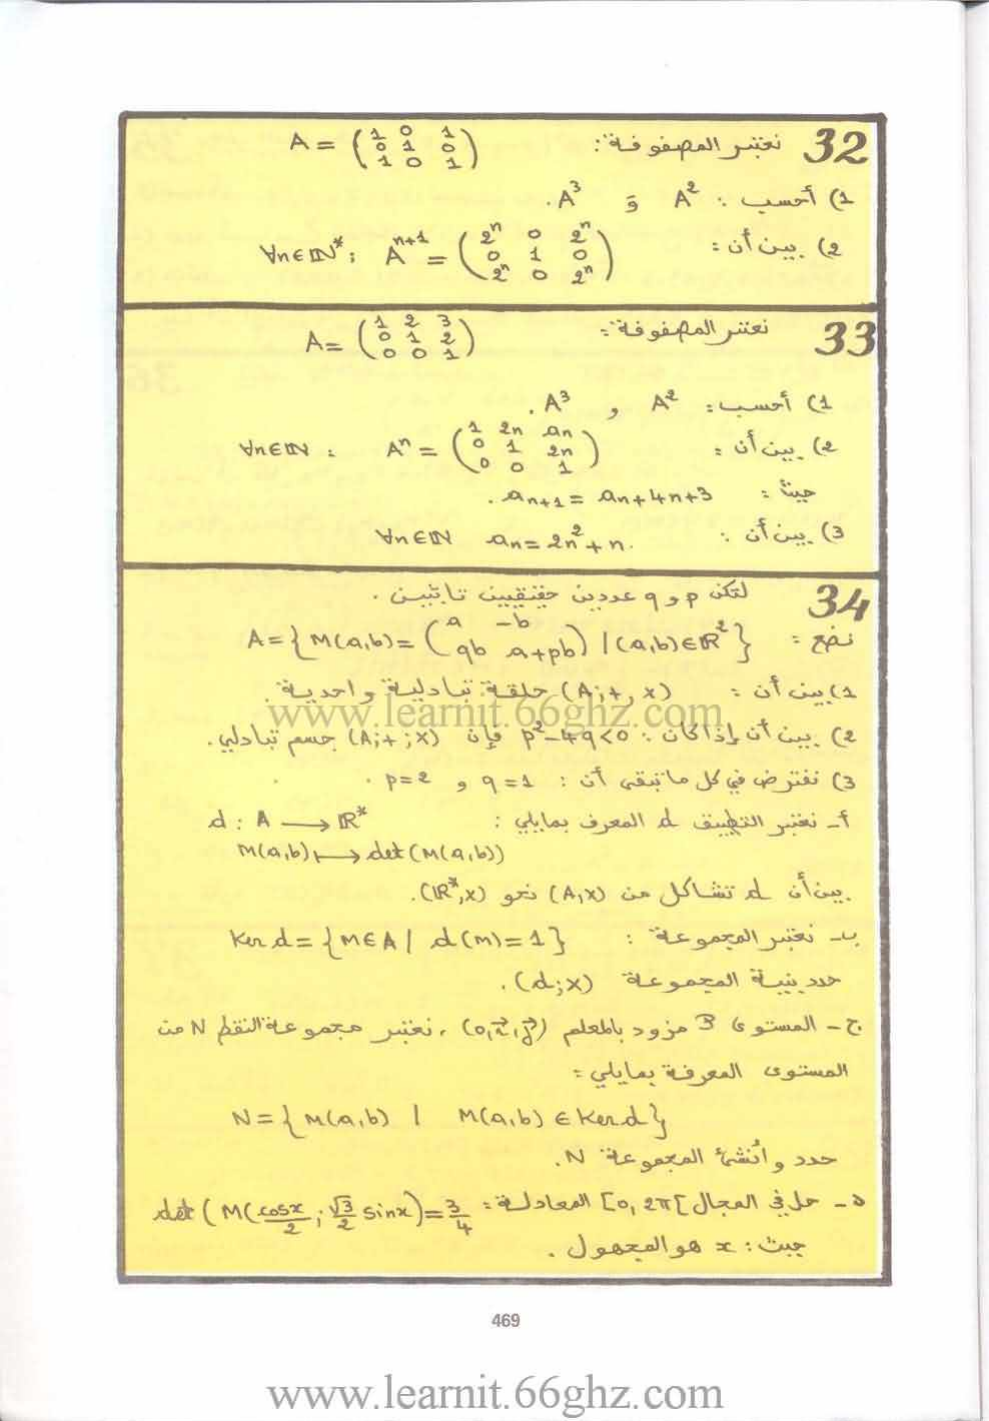 32 نعتبر المصفوفة: A = (1 0 1 / 0 1 0 / 1 0 1)
1) أحسب : A² و A³ .
2) بين أن : ∀n∈ℕ* ; Aⁿ⁺¹ = (2ⁿ 0 2ⁿ / 0 1 0 / 2ⁿ 0 2ⁿ)
33 نعتبر المصفوفة: A = (1 2 3 / 0 1 2 / 0 0 1)
1) أحسب: A² و A³ .
2) بين أن : ∀n∈ℕ : Aⁿ = (1 2n aₙ / 0 1 2n / 0 0 1)
حيث : aₙ₊₁ = aₙ+4n+3 .
3) بين أن : ∀n∈ℕ aₙ = 2n²+n .
34 لتكن p و q عددين حقيقيين تابثين .
نضع : A = { M(a,b) = (a -b / qb a+pb) / (a,b)∈ℝ² }
1) بين أن : (A;+,×) حلقة تبادلية واحدية .
www.learnit.66ghz.com
2) بين أن إذا كان : p²-4q<0 فإن (A;+;×) جسم تبادلي .
3) نفترض في كل ما تبقى أن : q=1 و p=2 .
أ- نعتبر التطبيق d المعرف بمايلي : d : A ⟶ ℝ*
M(a,b) ⟼ det(M(a,b))
بين أن d تشاكل من (A,×) نحو (ℝ*,×).
ب- نعتبر المجموعة : Ker d = { M∈A / d(M)=1 }
حدد بنية المجموعة (d;×) .
ج- المستوى P مزود بالمعلم (o,i⃗,j⃗) ، نعتبر مجموعة النقط N من
المستوى المعرفة بمايلي :
N = { M(a,b) / M(a,b) ∈ Ker d }
حدد و أنشئ المجموعة N .
د- حل في المجال [0, 2π[ المعادلة : det(M(cosx/2 ; √3/2 sinx) = 3/4
حيث : x هو المجهول .
469
www.learnit.66ghz.com